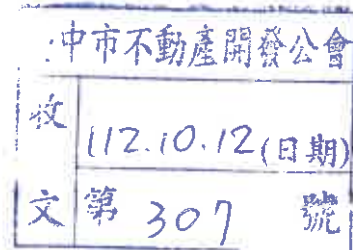 中市不動產開發公會
收文
112.10.12(日期)
第 307 號